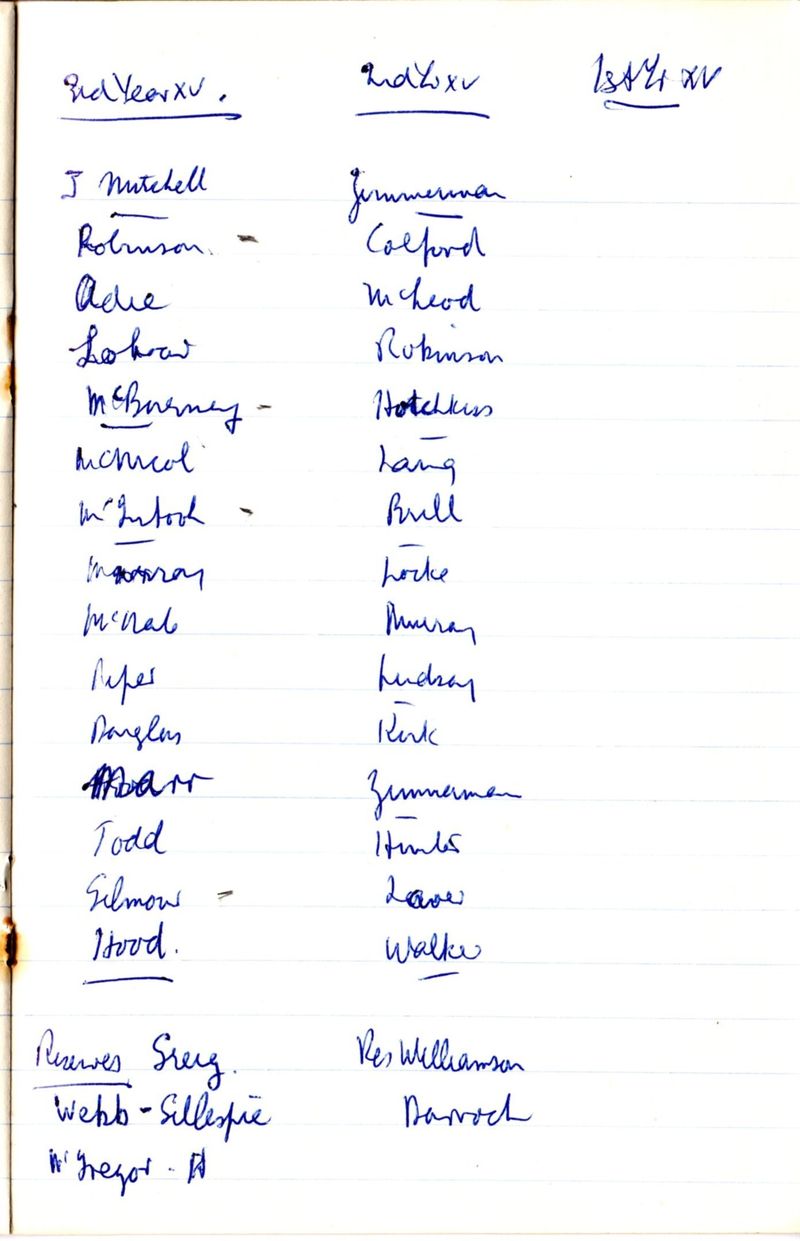 3rd Year XV. 2nd Yr XV 1st Yr XV
J Mitchell Zimmerman
Robinson. - Colford
Adie McLeod
Robinson
McBurney - Hotchkiss
McNicol Laing
McIntosh - Brill
Murray Locke
McNab Murray
Piper Lindsay
Douglas Kirk
Marr Zimmerman
Todd Hunter
Gilmour - Laver
Hood. Walker
Reserves Greig. Res Williamson
Webb - Gillespie Darroch
McGregor. A